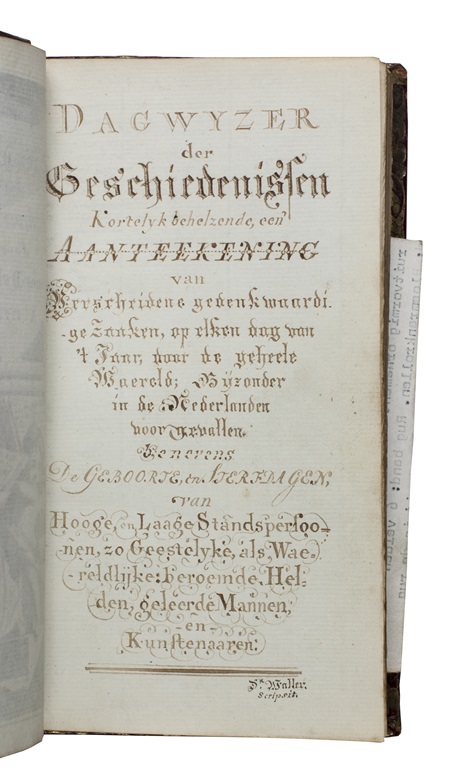 DAGWYZER
der
Geschiedenissen
Kortelyk behelzende, een
AANTEEKENING
van
Verscheidene gedenkwaardi-
-ge Zaaken, op elken dag van
't Jaar, door de geheele
Waereld; Byzonder
in de Nederlanden
voor gevallen.
Benevens
De GEBOORTE, en STERFDAGEN,
van
Hooge, en Laage Standspersoo-
nen, zo Geestelyke, als Wae-
-reldlijke: beroemde Hel-
den, geleerde Mannen,
-en-
Kunstenaaren.
Waller.
Scripsit.